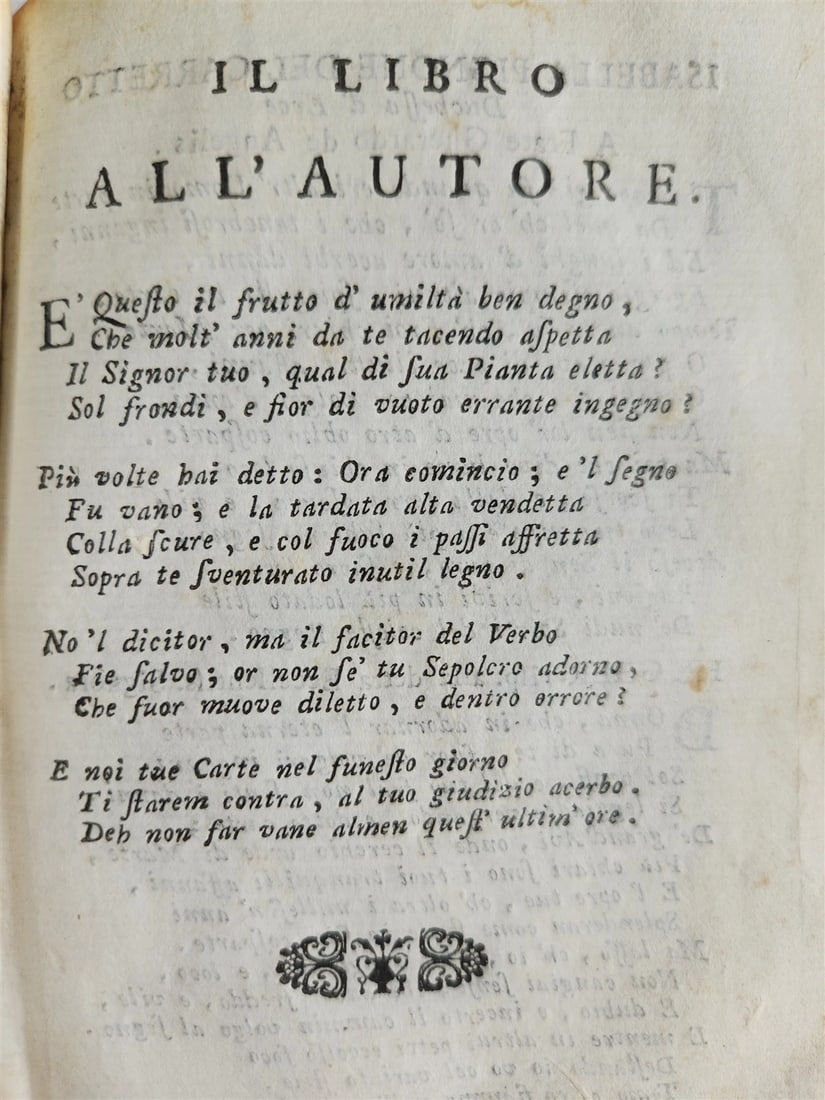 IL LIBRO
ALL' AUTORE.
E' Queſto il frutto d' umiltà ben degno,
Che molt' anni da te tacendo aſpetta
Il Signor tuo, qual di ſua Pianta eletta?
Sol frondi, e fior di vuoto errante ingegno?
Più volte hai detto: Ora comincio; e 'l ſegno
Fu vano; e la tardata alta vendetta
Colla ſcure, e col fuoco i paſſi affretta
Sopra te ſventurato inutil legno.
No 'l dicitor, ma il facitor del Verbo
Fie ſalvo; or non ſe' tu Sepolcro adorno,
Che fuor muove diletto, e dentro orrore?
E noi tue Carte nel funeſto giorno
Ti ſtarem contra, al tuo giudizio acerbo.
Deh non far vane almen queſt' ultim' ore.